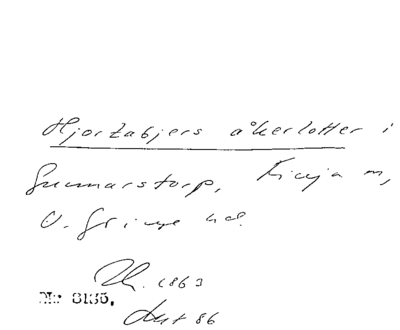 Hjortabjers åkerlotter i
Gunnarstorp, Finja m,
V. Göinge hd.
1863
Nr: 8135,
86